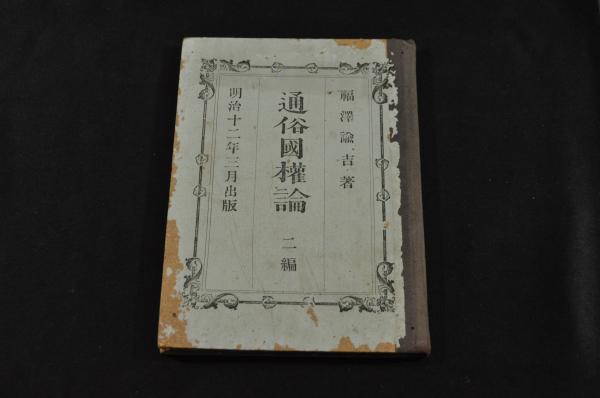 福澤諭吉著
通俗國權論 二編
明治十二年三月出版